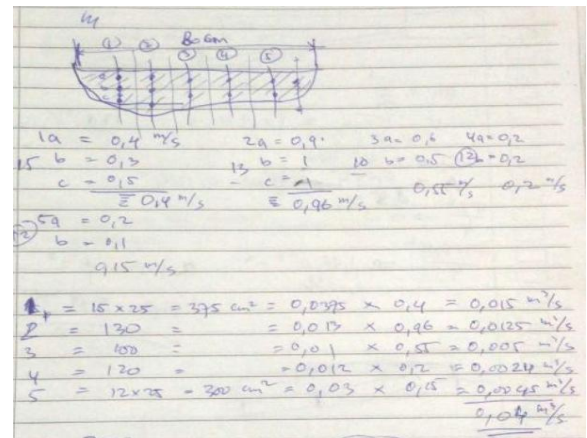 ① ② 80 cm ③ ④ ⑤
1a = 0,4 m/s 2a = 0,9 3a = 0,6 4a = 0,2
15 b = 0,3 13 b = 1 10 b = 0,5 12 b = 0,2
c = 0,5 c = 1 0,55 m/s 0,2 m/s
≡ 0,4 m/s ≡ 0,96 m/s
5a = 0,2
b = 0,1
0,15 m/s
1 = 15 x 25 = 375 cm² = 0,0375 x 0,4 = 0,015 m³/s
2 = 130 = = 0,013 x 0,96 = 0,0125 m³/s
3 = 100 = = 0,01 x 0,55 = 0,005 m³/s
4 = 120 = = 0,012 x 0,2 = 0,0024 m³/s
5 = 12 x 25 = 300 cm² = 0,03 x 0,15 = 0,0045 m³/s
0,04 m³/s